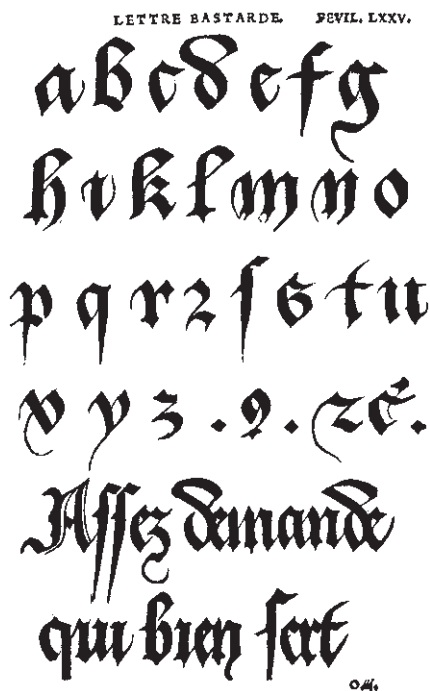 LETTRE BASTARDE. FEVIL. LXXV.
a b c d e f g
h i k l m n o
p q r ꝛ ſ s t u
v y z . 9 . ⁊ &.
Aſſez demande
qui bien ſert